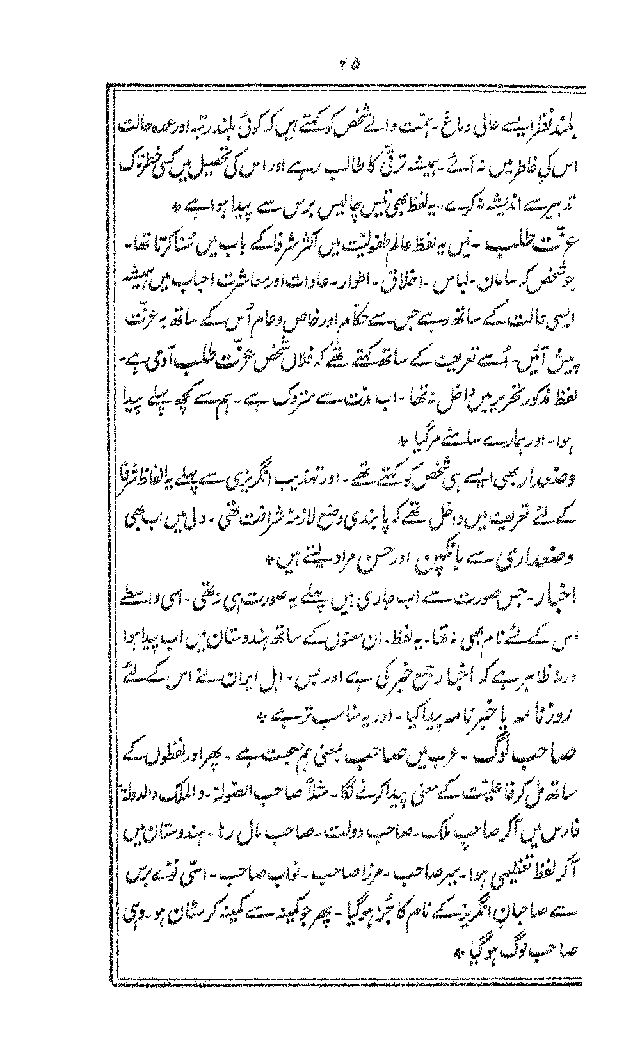 ۲۵
بلند نظر ایسے عالی دماغ۔ ہمت والے شخص کو کہتے ہیں کہ کوئی بلند رتبہ اور عمدہ حالت
اس کی خاطر میں نہ آئے۔ ہمیشہ ترقی کا طالب رہے اور اس کی تحصیل میں کسی خطرناک
تدبیر سے اندیشہ نہ کرے۔ یہ لفظ بھی تیس چالیس برس سے پیدا ہوا ہے *
عزت طلب۔ میں یہ لفظ عالم طفولیت میں اکثر شرفا کے باب میں سُنا کرتا تھا۔
جو شخص کہ سامان۔ لباس۔ اخلاق۔ اطوار۔ عادات اور معاشرت احباب میں ہمیشہ
ایسی حالت کے ساتھ رہے جس سے حکام اور خاص و عام اُس کے ساتھ بہ عزت
پیش آئیں۔ اُسے تعریف کے ساتھ کہتے تھے کہ فلاں شخص عزت طلب آدمی ہے۔
لفظ مذکور تحریر میں داخل نہ تھا۔ اب مدت سے متروک ہے۔ ہم سے کچھ پہلے پیدا
ہوا۔ اور ہمارے سامنے مر گیا *
وضعدار بھی ایسے ہی شخص کو کہتے تھے۔ اور تہذیب انگریزی سے پہلے یہ الفاظ شرفا
کے لئے تعریف میں داخل تھے کہ پابندی وضع لازمۂ شرافت تھی۔ دل میں اب بھی
وضعداری سے بانکپن اور حسن مراد لیتے ہیں *
اخبار۔ جس صورت سے اب جاری ہیں پہلے یہ صورت ہی نہ تھی۔ اسی واسطے
اس کے لئے نام بھی نہ تھا۔ یہ لفظ۔ ان معنوں کے ساتھ ہندوستان میں اب پیدا ہوا
ورنہ ظاہر ہے کہ اخبار جمع خبر کی ہے اور بس۔ اہل ایران نے اس کے لئے
روزنامہ یا خبرنامہ پیدا کیا۔ اور یہ مناسب تر ہے *
صاحب لوگ۔ عرب میں صاحب بمعنی ہم صحبت ہے۔ پھر اور لفظوں کے
ساتھ مل کر فاعلیت کے معنی پیدا کرنے لگا۔ مثلاً صاحب الصولۃ۔ والملک والدولۃ
فارس میں آ کر صاحب ملک۔ صاحب دولت۔ صاحب مال رہا۔ ہندوستان میں
آ کر لفظ تعظیمی ہوا۔ میر صاحب۔ مرزا صاحب۔ نواب صاحب۔ اسی نوے برس
سے صاحبان انگریز کے نام کا جز ہو گیا۔ پھر جو کمینہ سے کمینہ کرسٹان ہو۔ وہی
صاحب لوگ ہو گیا *